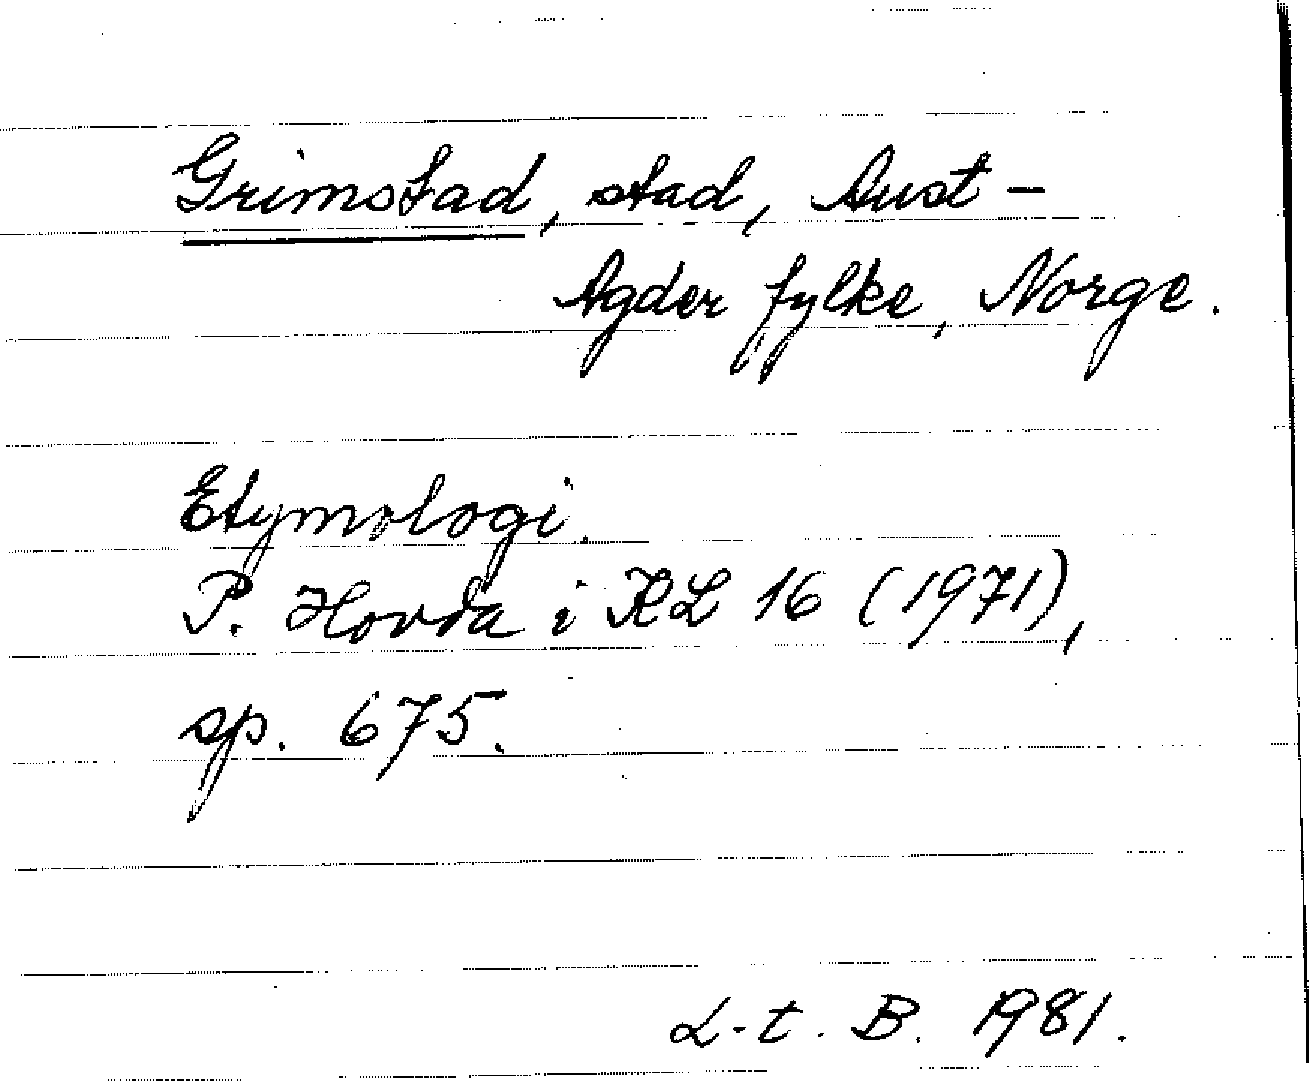 Grimstad, stad, Aust-
Agder fylke, Norge.
Etymologi.
P. Hovda i KL 16 (1971),
sp. 675.
L-t. B. 1981.